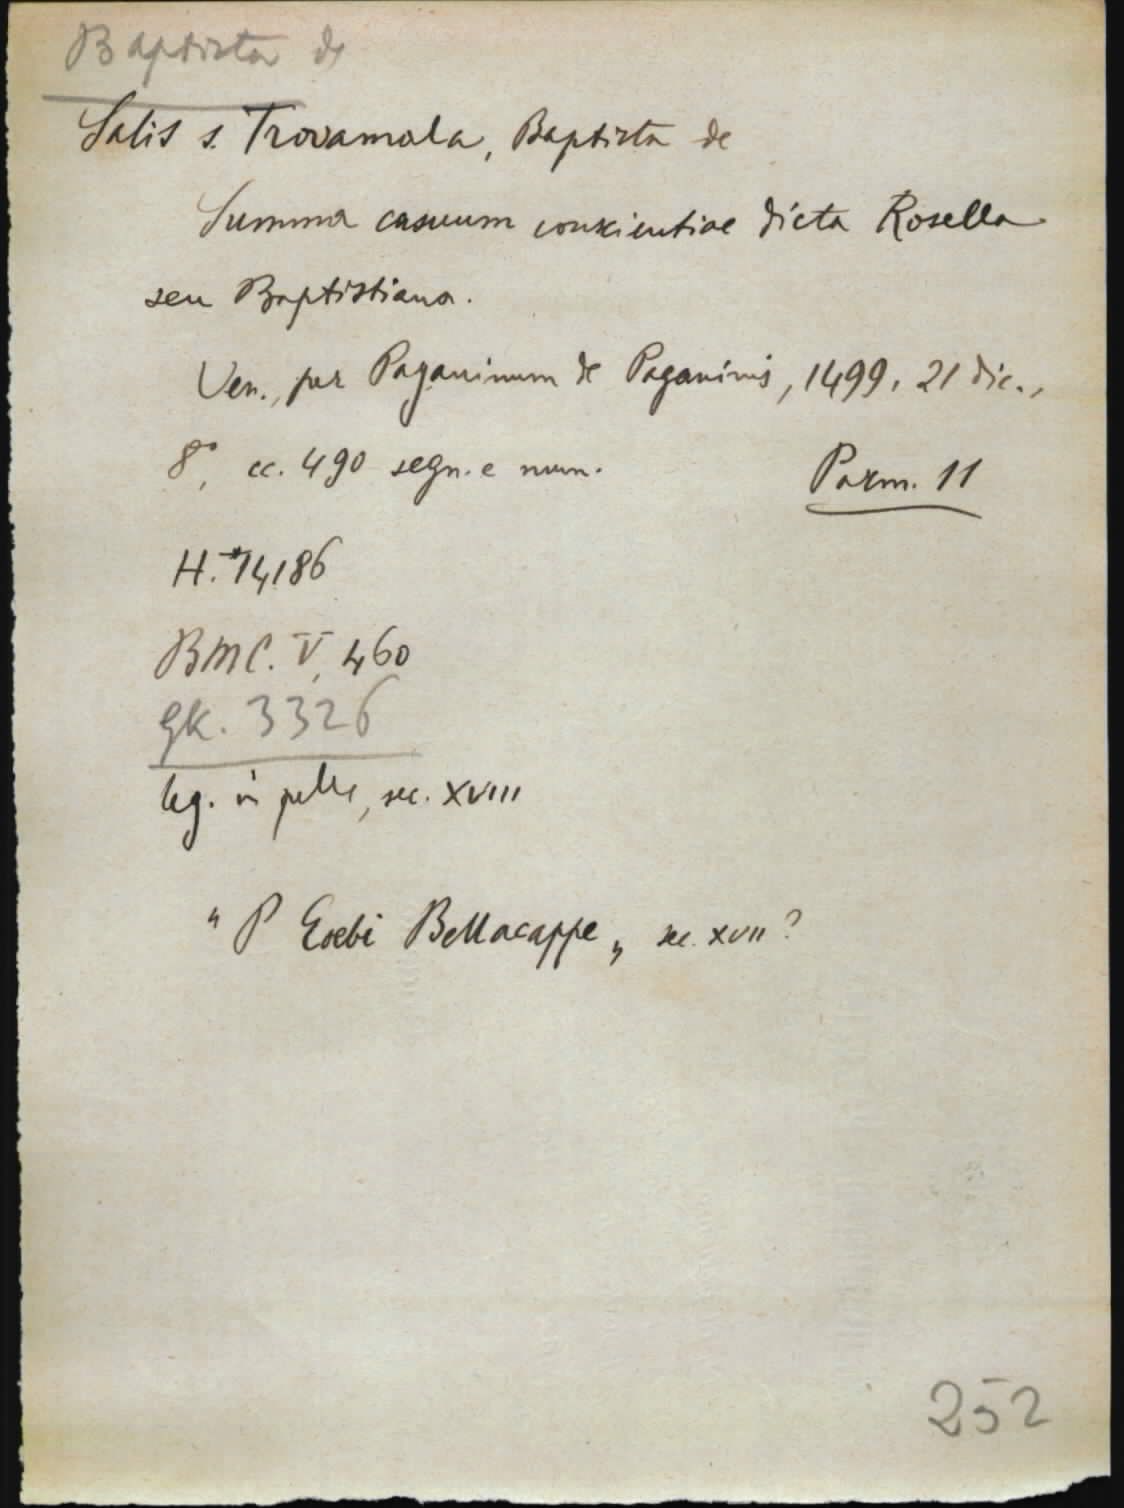 Baptista de
Salis s. Trovamala, Baptista de
Summa casuum conscientiae dicta Rosella
seu Baptistiana.
Ven., per Paganinum de Paganinis, 1499, 21 dic.,
8°, cc. 490 segn. e num.
Parm. 11
H. *14186
BMC. V, 460
GK. 3326
leg. in pelle, sec. XVIII
"P Eusebi Bellacappe„ sec. XVII?
252